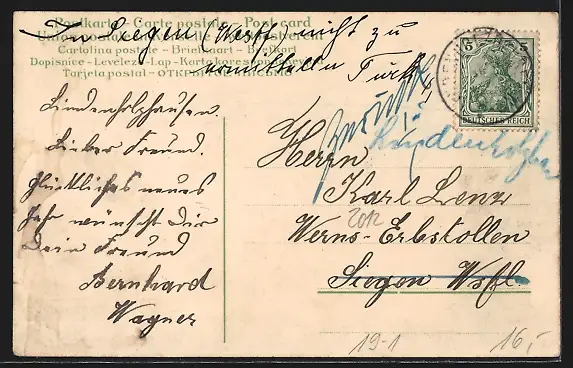 Postkarte - Carte postale - Post card
Cartolina postale - Briefkaart - Brefkort
Dopisnice - Levelező-Lap - Karta korespondencyjna
Tarjeta postal - ОТКРЫТОЕ ПИСЬМО
In Siegen (Westf nicht zu
ermitteln
zurück
Lindenholzhausen
5
DEUTSCHES REICH
Lindenholzhausen.
Lieber Freund.
Glückliches neues
Jahr wünscht Dir
Dein Freund
Bernhard
Wagner
Herrn
Karl Lenz
2012
Werns-Erbstollen
Siegen Wstfl
19-1
16,-